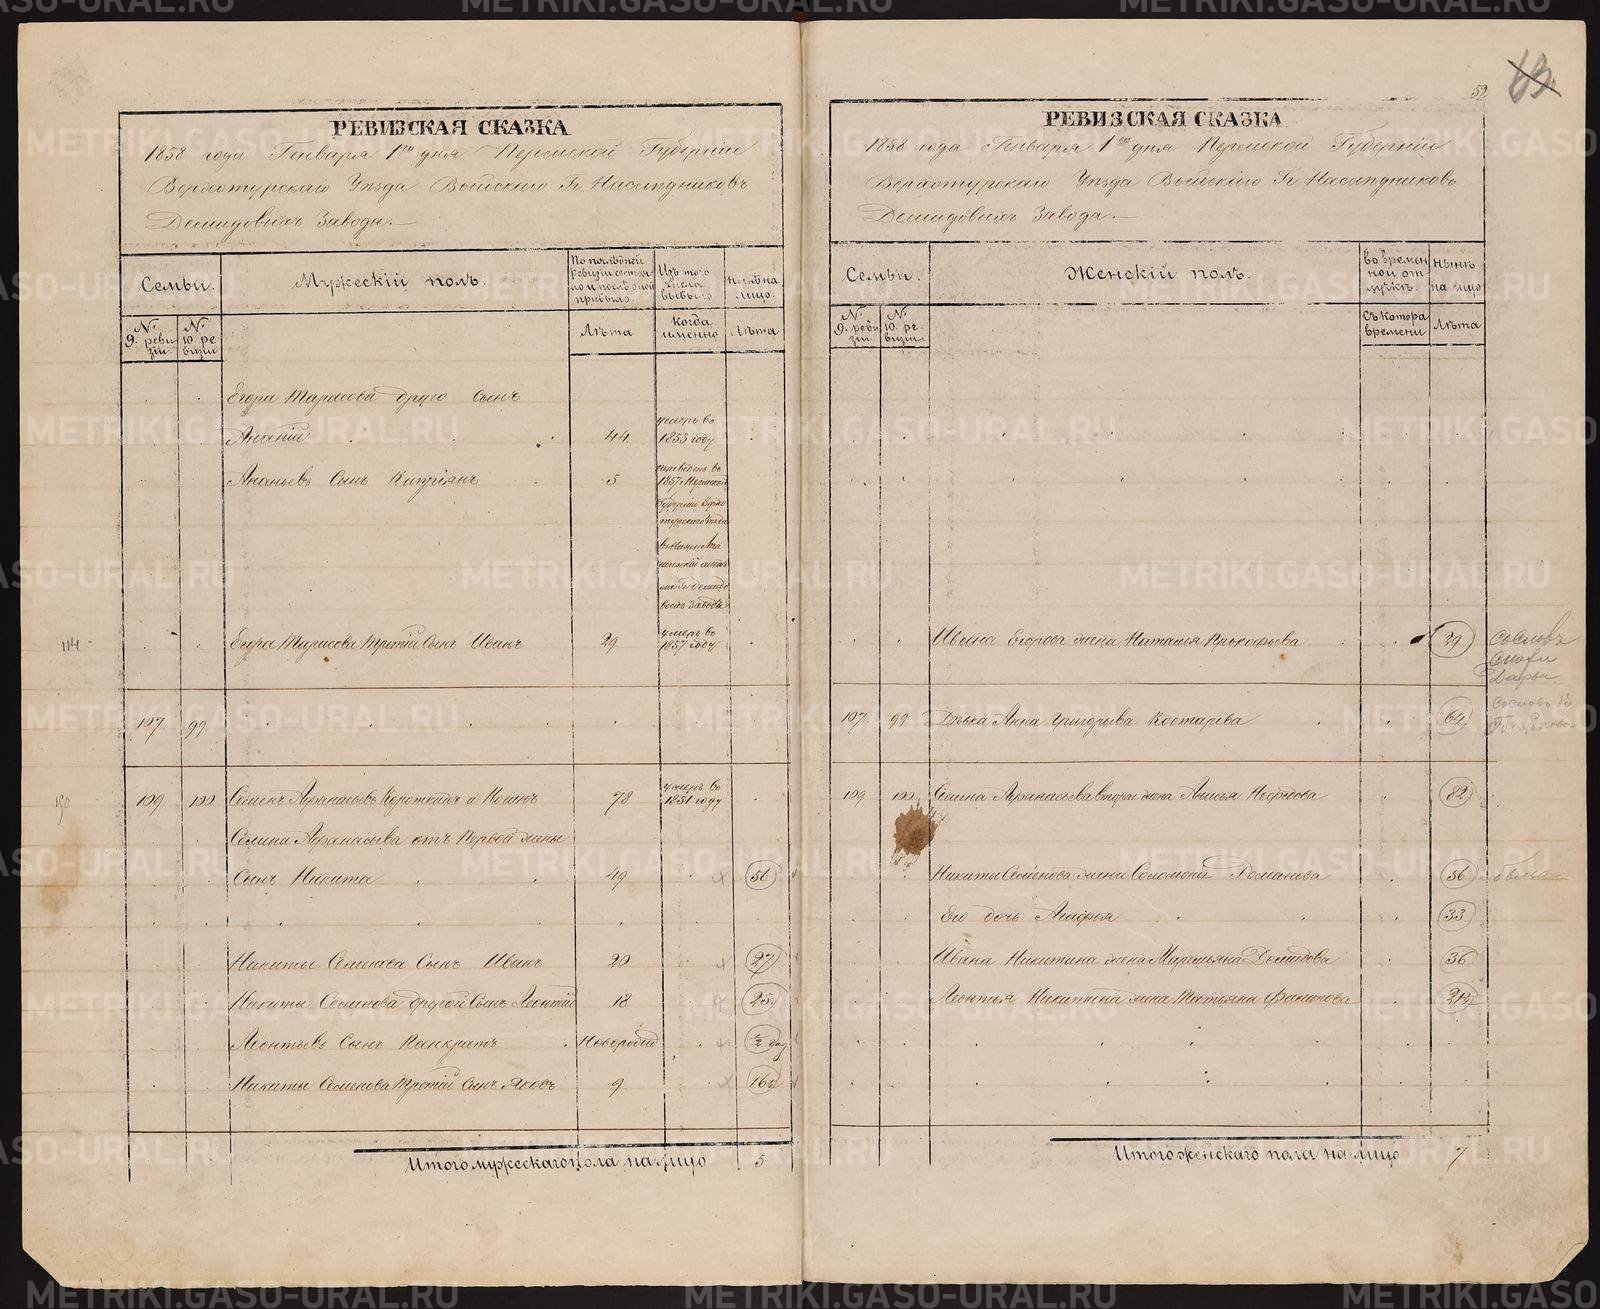 59
63
РЕВИЗСКАЯ СКАЗКА
1858 года Генваря 1го дня Пермской Губерніи
Верхотурскаго Уѣзда Выйскаго Гг. Наслѣдниковъ
Демидовыхъ Завода.
Семьи.
Мужескій полъ.
По послѣдней ревизіи состояло и послѣ оной прибыло
Изъ того числа выбыло
Нынѣ на лицо.
№ 9. ревизіи
№ 10 ревизіи
Лѣта
Когда именно
Лѣта
Егора Тарасова друго Сынъ
Ананій 44 умеръ въ 1853 году
Ананьевъ Сынъ Кипріянъ 5 переведенъ въ
1857 г Пермской
Губерніи Верхо
турскаго Уѣзда
Гг Демидо
выхъ заводъ
114
Егора Тарасова Третій Сынъ Иванъ 29 умеръ въ 1857 году
197 99
190
199 100 Семенъ Афанасьевъ Короткихъ и Когинъ 78 умеръ въ 1851 году
Семена Афанасьева отъ Первой жены
Сынъ Никита 49 56
Никиты Семенова Сынъ Иванъ 20 27
Никиты Семенова другой Сынъ Леонтій 18 25
Леонтьевъ Сынъ Панкратъ Новорожд ½ год
Никиты Семенова Третій Сынъ Яковъ 9 16½
Итого мужескаго пола на лицо 5
РЕВИЗСКАЯ СКАЗКА
1858 года Генваря 1го дня Пермской Губерніи
Верхотурскаго Уѣзда Выйскаго Гг Наслѣдниковъ
Демидовыхъ Завода.
Семьи.
Женскій полъ.
во временной отлучкѣ.
Нынѣ на лицо
№ 9. ревизіи
№ 10. ревизіи
Съ котора времени
Лѣта
Ивана Егорова жена Наталья Прокофьева 29
197 99 Дѣвка Анна Григорьева Костарева 64
199 100 Семена Афанасьева вторая жена Анисья Нефедова 82
Никиты Семенова жена Соломонія Романова 56
Его дочь Агафья 33
Ивана Никитина жена Маремьяна Демидова 36
Леонтья Никитина жена Татьяна 24½
Итого женскаго пола на лицо 7
METRIKI.GASO-URAL.RU